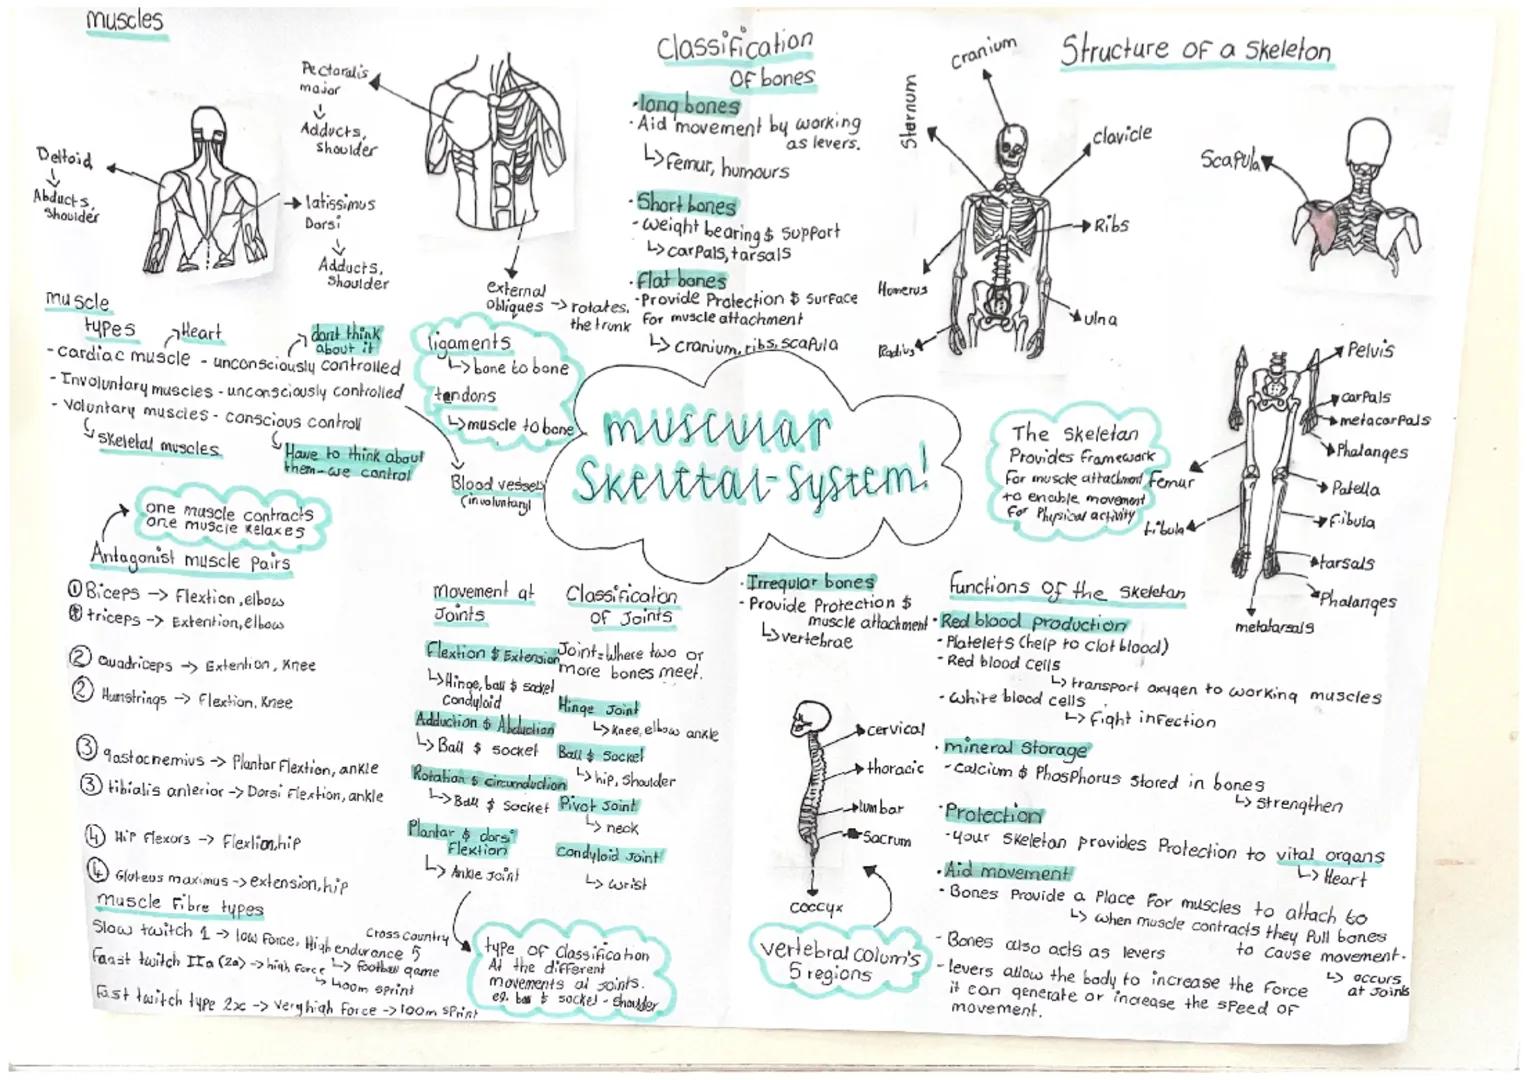 muscles
Pectoralis
major
Adducts,
shoulder
Deltoid
Abducts,
Shoulder
latissimus
Dorsi
Adducts,
Shoulder
external
obliques → rotates,
the trunk
muscle
types
Heart
dont think
about it
- Cardiac muscle - unconsciously controlled
- Involuntary muscles - unconsciously controlled
- Voluntary muscles - conscious controll
Skeletal muscles.
Have to think about
them - we control
Blood vessels
(involuntary)
ligaments
↳ bone to bone
tendons
↳ muscle to bone
one muscle contracts
one muscle relaxes
Antagonist muscle pairs
① Biceps → Flextion, elbow
① triceps → Extention, elbow
② Quadriceps → Extention, Knee
② Humstrings → Flextion, Knee
③ gastocnemius → Plantar Flextion, ankle
③ tibialis anterior → Dorsi Flextion, ankle
④ Hip Flexors → Flextion, hip
④ Gluteus maximus → extension, hip
muscle Fibre types
Slow twitch 1 → low Force, High endurance
Cross Country
↳ Football game
Faast twitch IIa (2a) → high Force
↳ 400m sprint
Fast twitch type 2x → Very high Force → 100m sprint
Classification
OF bones
· long bones
- Aid movement by working
as levers.
↳ Femur, humours
· Short bones
- weight bearing & support
↳ carpals, tarsals
· Flat bones
- Provide Protection & surface
For muscle attachment
↳ cranium, ribs, scapula
muscular
Skeletal-System!
Movement at
Joints
Flextion & Extension
↳ Hinge, ball & socket
condyloid
Adduction & Abduction
↳ Ball & socket
Rotation & circumduction
↳ Ball & Socket
Plantar & dorsi
Flextion
↳ Ankle Joint
Classification
OF Joints
Joint = Where two or
more bones meet.
Hinge Joint
↳ Knee, elbow ankle
Ball & Socket
↳ hip, Shoulder
Pivot Joint
↳ neck
Condyloid Joint
↳ wrist
type of Classification
At the different
movements at Joints.
eg. ball & socket - Shoulder
· Irregular bones
- Provide Protection &
muscle attachment
↳ vertebrae
cervical
thoracic
lumbar
Sacrum
coccyx
vertebral colum's
5 regions
Structure of a Skeleton
cranium
Sternum
clavicle
Ribs
Humerus
Ulna
Radius
Scapula
Pelvis
carpals
metacarpals
Phalanges
Femur
Patella
Fibula
tibula
tarsals
Phalanges
metatarsals
The Skeletan
Provides Framework
For muscle attachment
to enable movement
For Physical activity
Functions of the Skeletan
· Red blood production
- Platelets (help to clot blood)
- Red blood cells
↳ transport oxygen to working muscles
- White blood cells
↳ Fight infection
· mineral Storage
- Calcium & Phosphorus stored in bones
↳ Strengthen
· Protection
- your skeletan provides Protection to vital organs
↳ Heart
· Aid movement
- Bones Provide a Place For muscles to attach to
↳ when muscle contracts they Pull bones
to cause movement.
↳ occurs
at Joints
- Bones also acts as levers
- levers allow the body to increase the Force
it can generate or increase the speed of
movement.